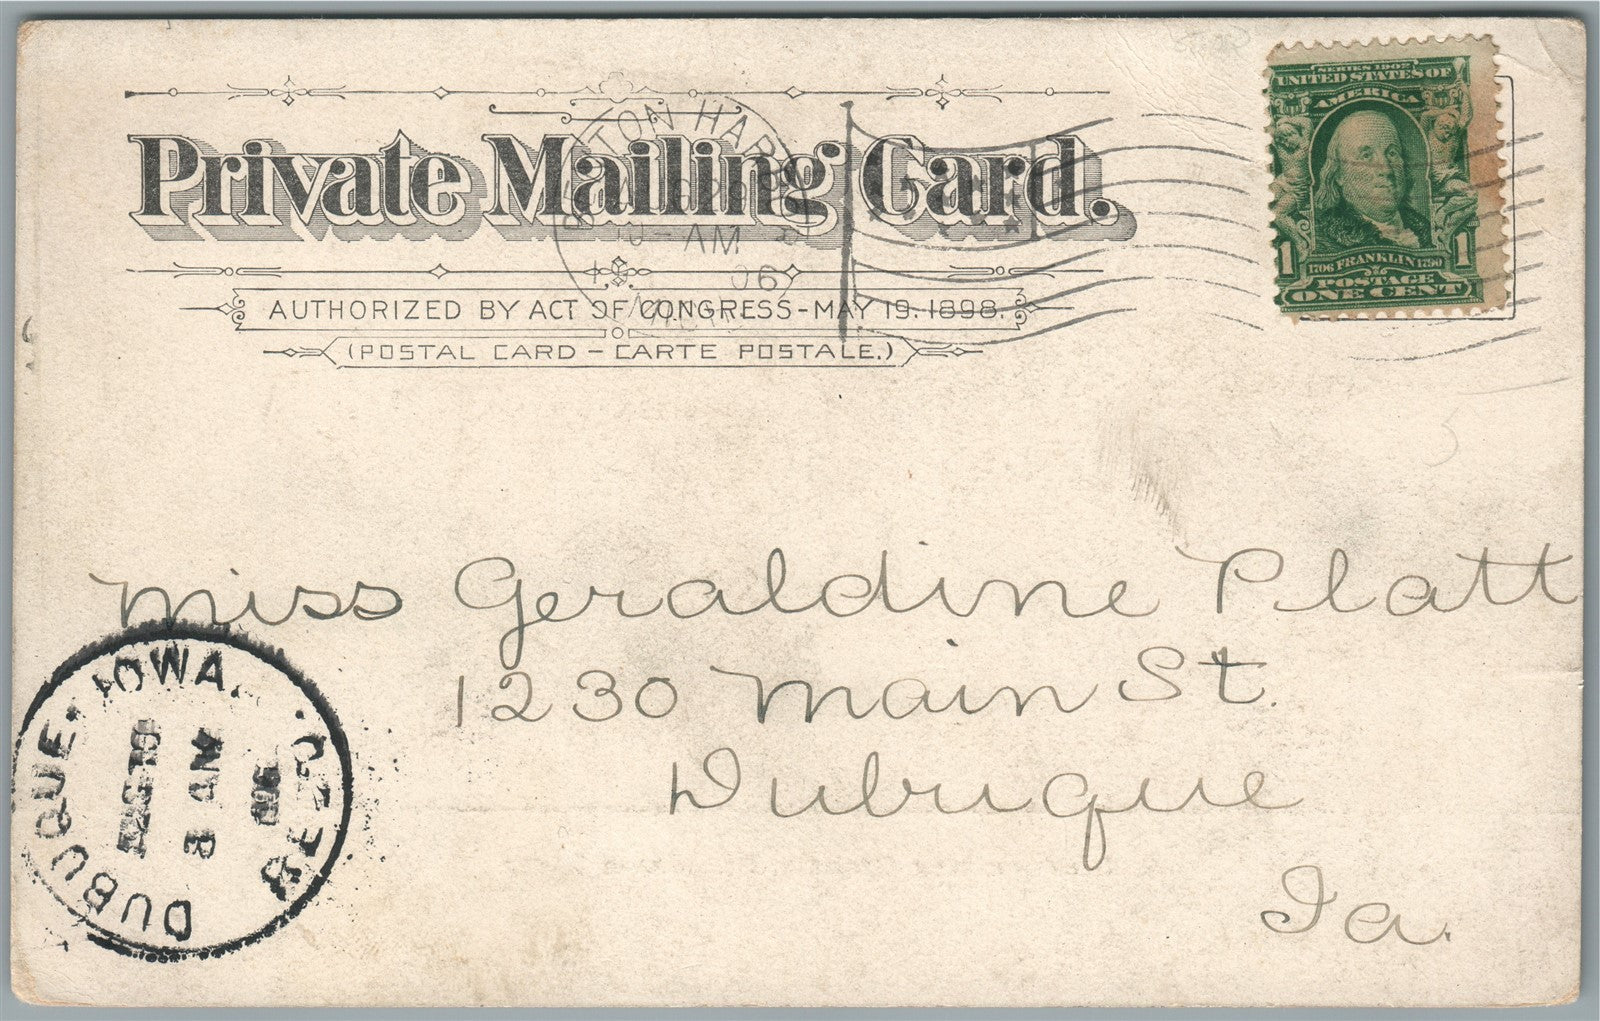 SERIES 1902
UNITED STATES OF
AMERICA
1706 FRANKLIN 1790
1 1
POSTAGE
ONE CENT
Private Mailing Card.
AUTHORIZED BY ACT OF CONGRESS-MAY 19, 1898.
(POSTAL CARD - CARTE POSTALE.)
TON HAR
AM
06
Miss Geraldine Platt
1230 Main St.
Dubuque
Ia.
DUBUQUE. IOWA.
8 AM
REC'D.